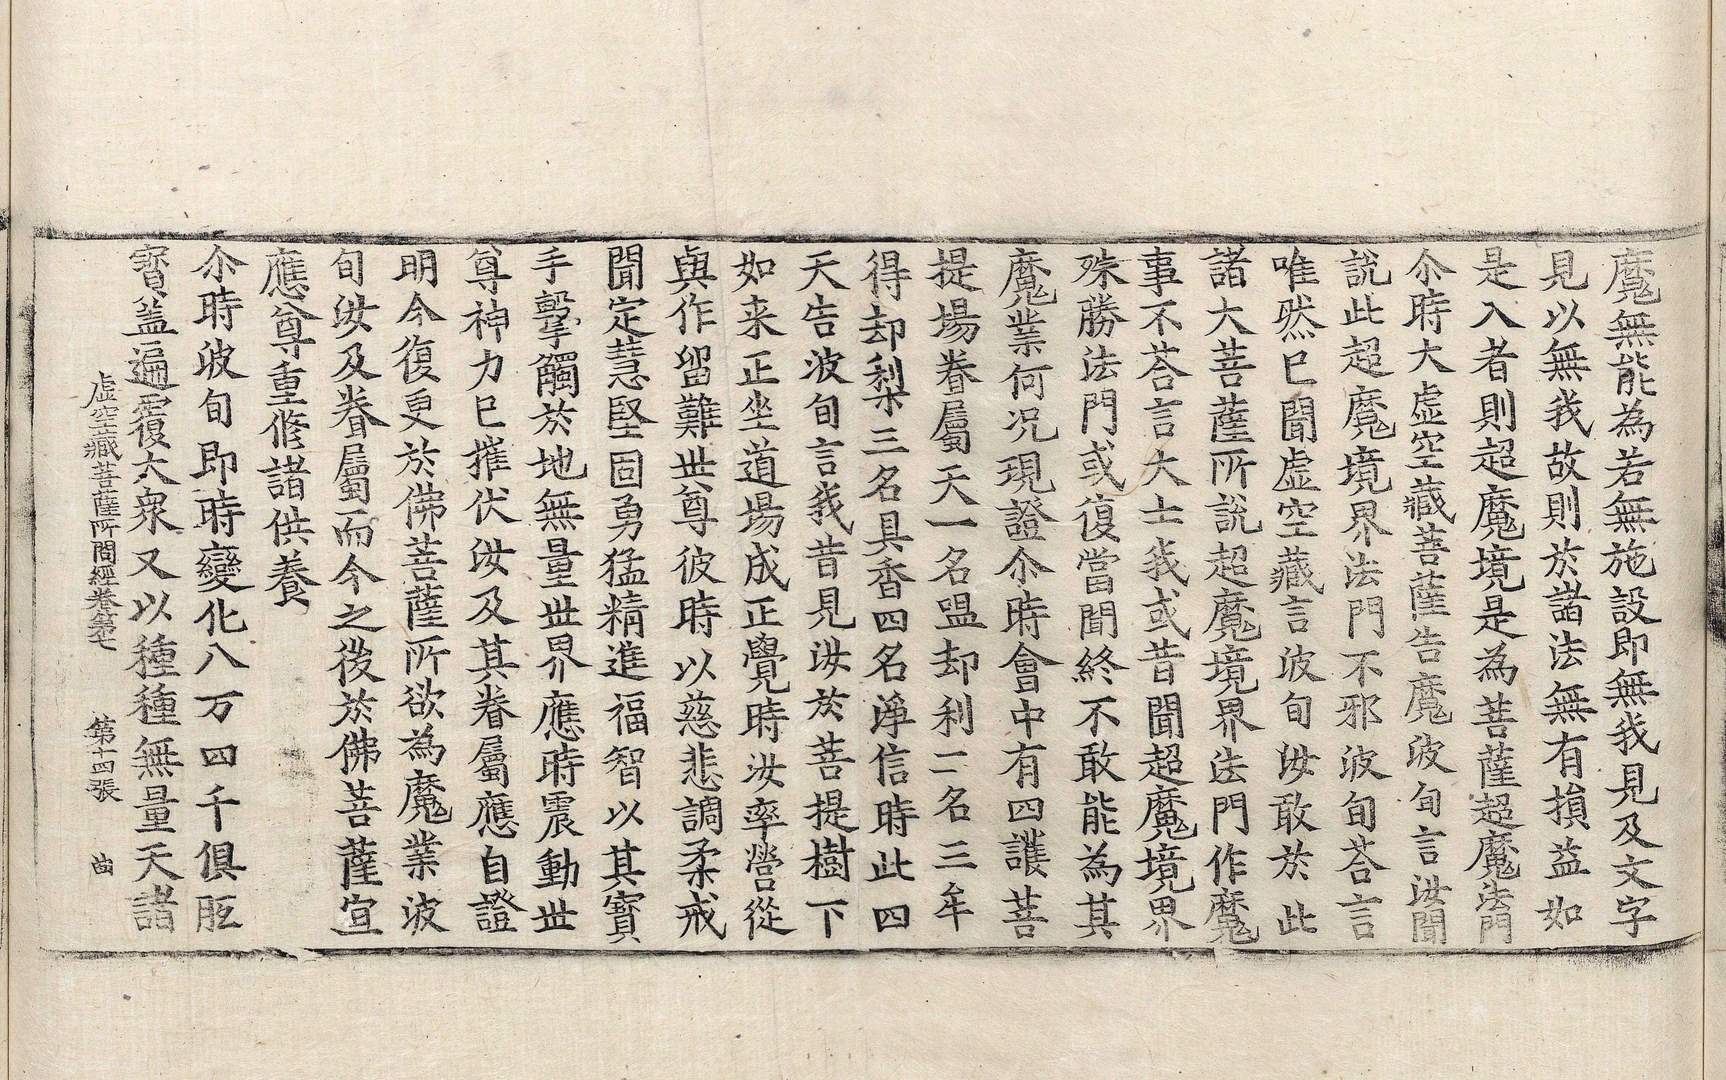 魔無能為若無施設即無我見及文字
見以無我故則於諸法無有損益如
是入者則超魔境是為菩薩超魔法門
尒時大虛空藏菩薩告魔波旬言汝聞
說此超魔境界法門不邪波旬荅言
唯然已聞虛空藏言波旬汝敢於此
諸大菩薩所說超魔境界法門作魔
事不荅言大士我或昔聞超魔境界
殊勝法門或復當聞終不敢能為其
魔業何况現證尒時會中有四護菩
提場眷屬天一名嗢却利二名三牟
得却梨三名具香四名淨信時此四
天告波旬言我昔見汝於菩提樹下
如来正坐道場成正覺時汝率營從
與作留難世尊彼時以慈悲調柔戒
聞定慧堅固勇猛精進福智以其寶
手擊觸於地無量世界應時震動世
尊神力已摧伏汝及其眷屬應自證
明今復更於佛菩薩所欲為魔業波
旬汝及眷屬而今之後於佛菩薩宣
應尊重修諸供養
尒時波旬即時變化八万四千俱胝
寶盖遍覆大衆又以種種無量天諸
虛空藏菩薩所問經卷第七 第十四張